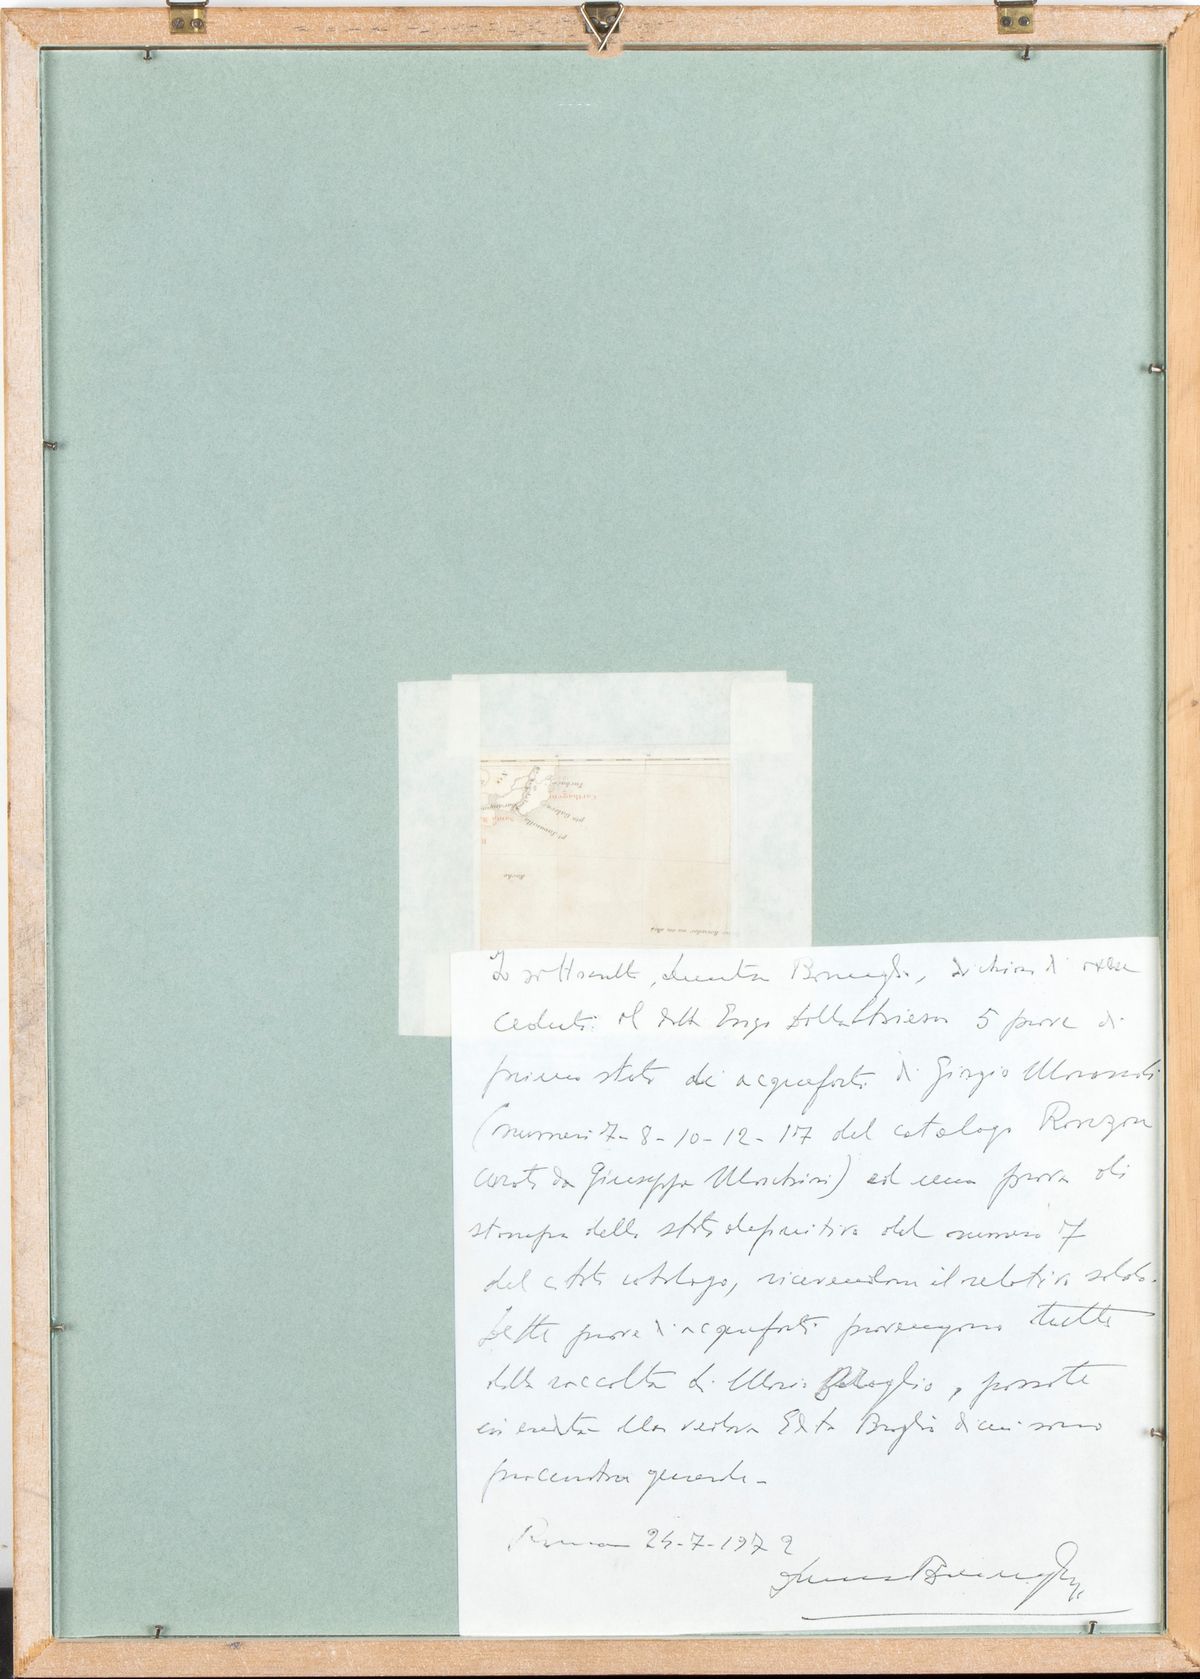 Carthagena
pta Galera
pt. Savanilla
Santa
Io sottoscritta, dichiaro di aver
ceduto al dott. 5 prove di
primo stato di acqueforti di Giorgio Morandi
(numeri 7-8-10-12-17 del catalogo
curato da Giuseppe Marchiori) ed una prova di
stampa dello stato definitivo del numero 7
del citato catalogo, ricevendone il relativo saldo.
Dette prove di acqueforti provengono tutte
dalla raccolta di Mario Broglio, passate
in eredità alla vedova Edita Broglio di cui sono
procuratrice generale.
Roma 24-7-1972